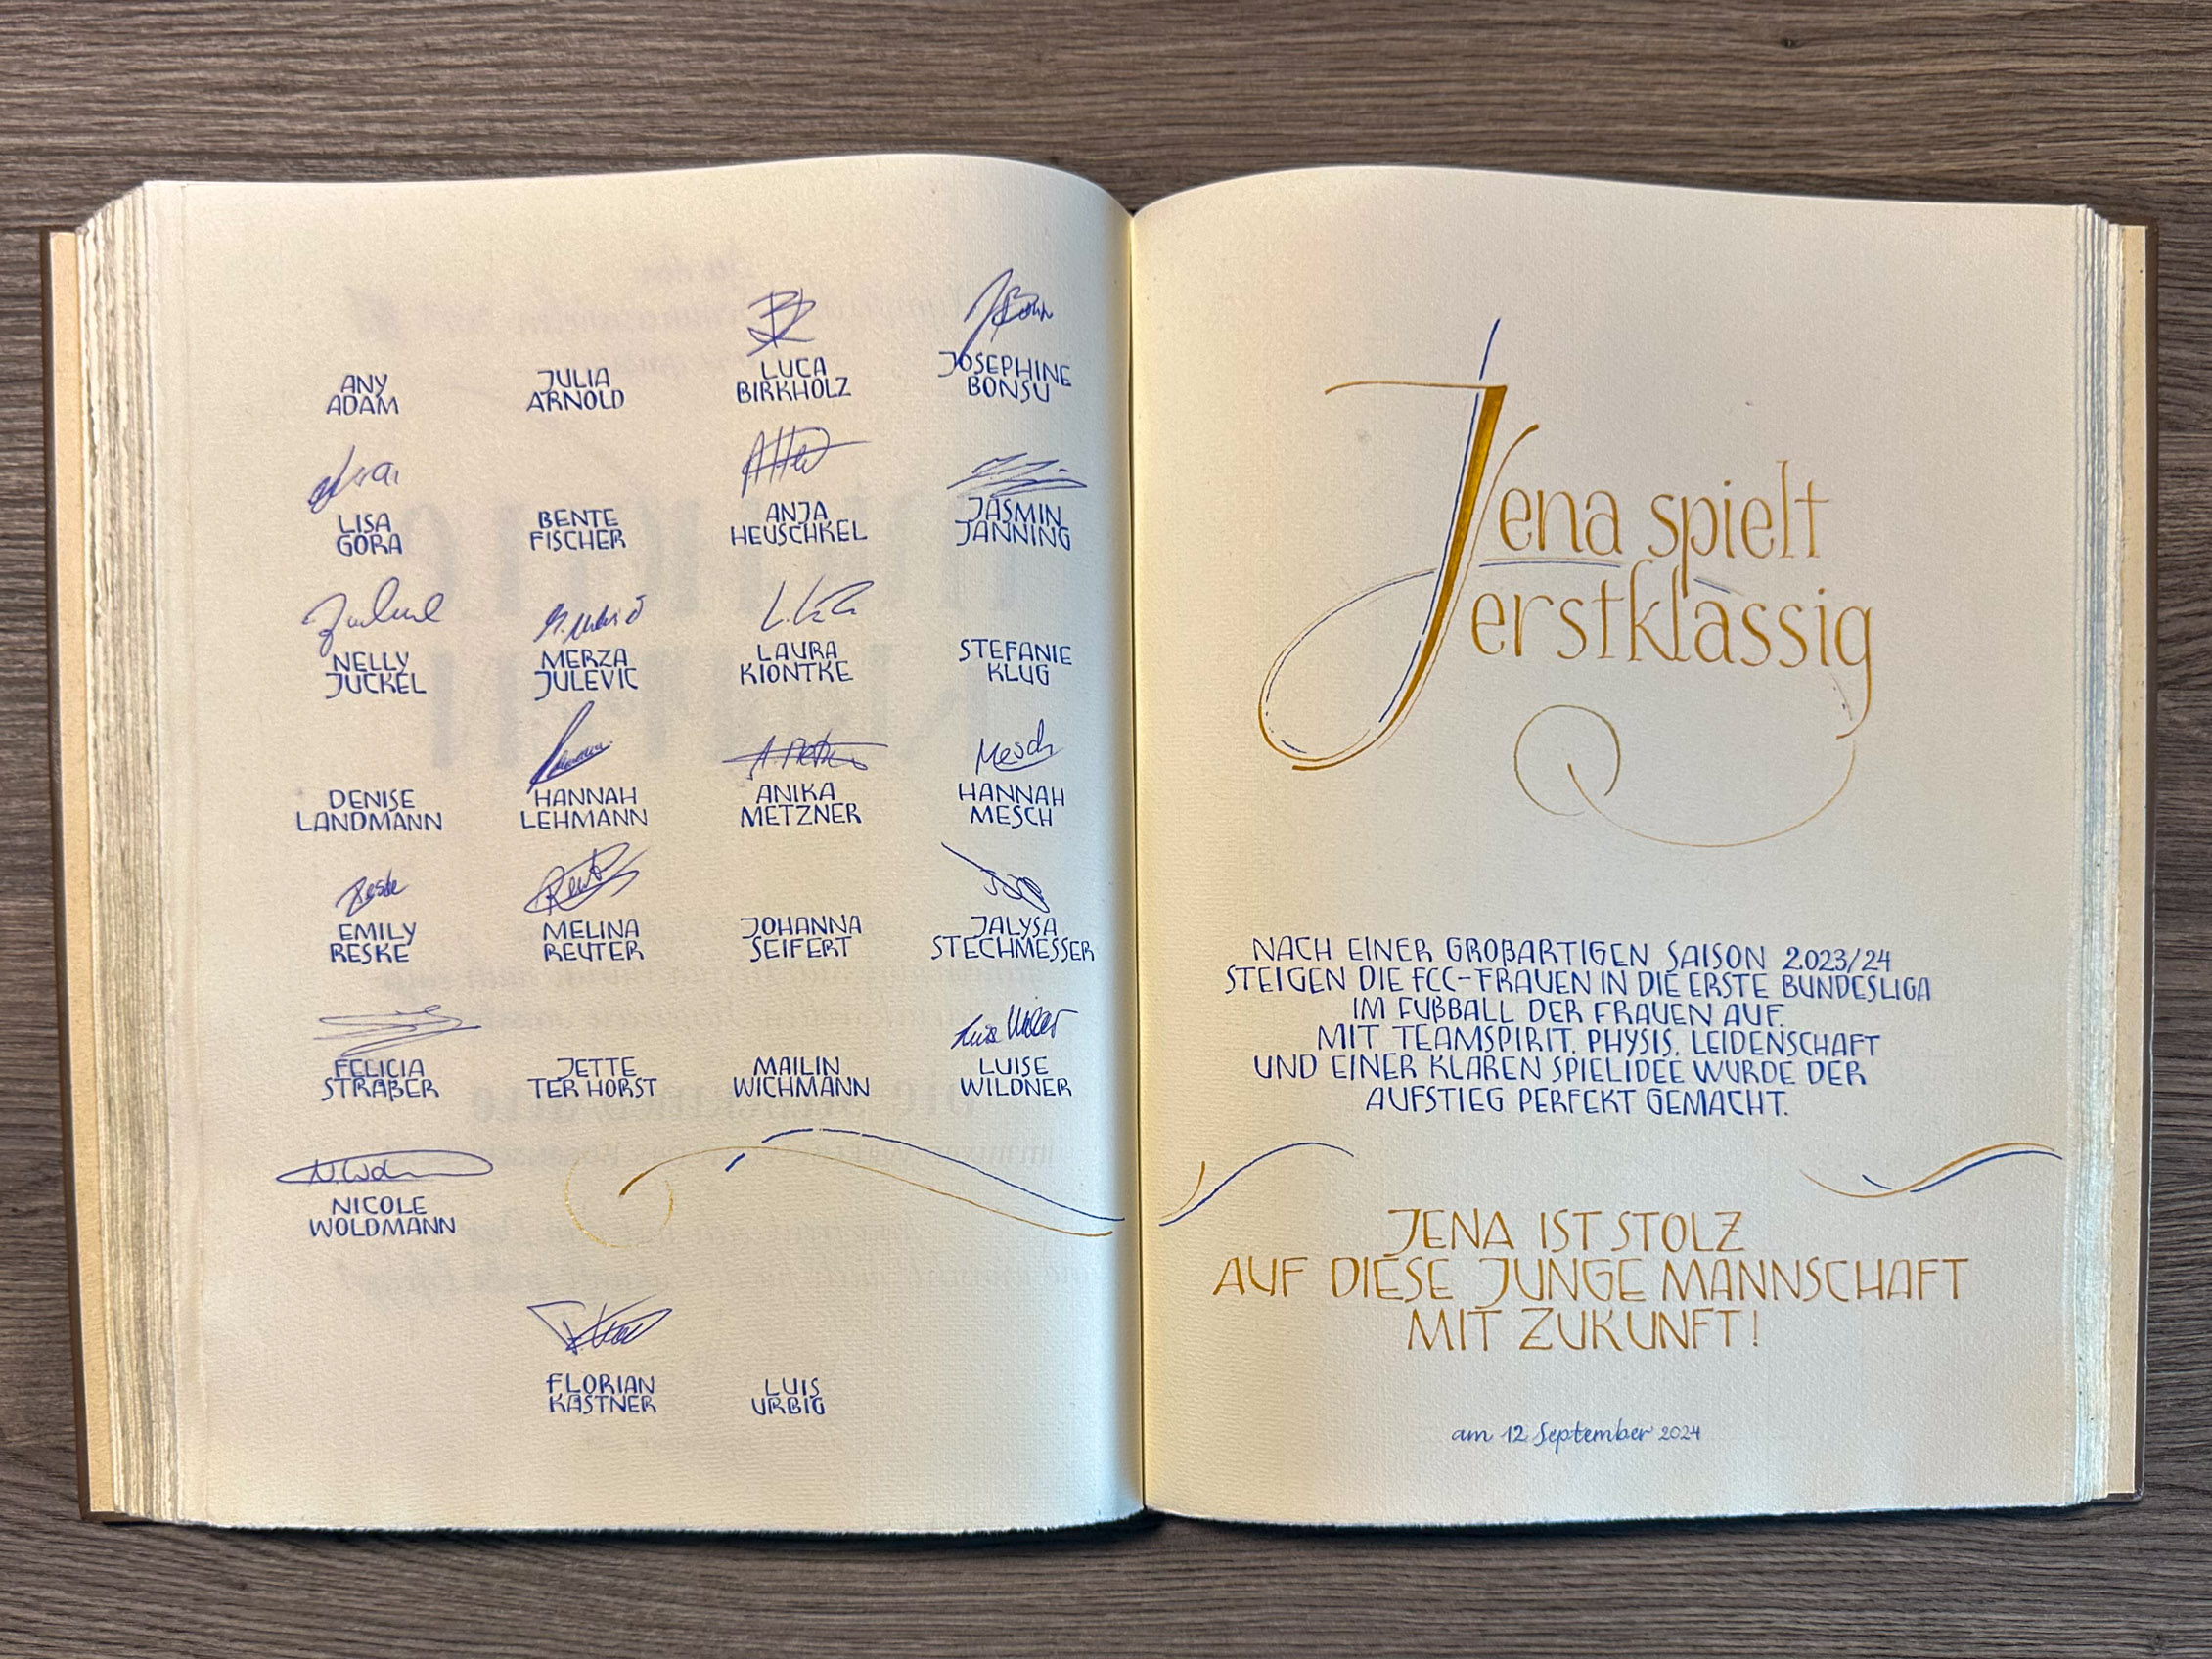 ANY
ADAM
JULIA
ARNOLD
LUCA
BIRKHOLZ
JOSEPHINE
BONSU
LISA
GORA
BENTE
FISCHER
ANJA
HEUSCHKEL
JASMIN
JANNING
NELLY
JUCKEL
MERZA
JULEVIC
LAURA
KIONTKE
STEFANIE
KLUG
DENISE
LANDMANN
HANNAH
LEHMANN
ANIKA
METZNER
Mesch
HANNAH
MESCH
Reske
EMILY
RESKE
MELINA
REUTER
JOHANNA
SEIFERT
JALYSA
STECHMESSER
FELICIA
STRAßER
JETTE
TER HORST
MAILIN
WICHMANN
LUISE
WILDNER
NICOLE
WOLDMANN
FLORIAN
KASTNER
LUIS
URBIG
Jena spielt
erstklassig
NACH EINER GROßARTIGEN SAISON 2023/24
STEIGEN DIE FCC-FRAUEN IN DIE ERSTE BUNDESLIGA
IM FUßBALL DER FRAUEN AUF.
MIT TEAMSPIRIT, PHYSIS, LEIDENSCHAFT
UND EINER KLAREN SPIELIDEE WURDE DER
AUFSTIEG PERFEKT GEMACHT.
JENA IST STOLZ
AUF DIESE JUNGE MANNSCHAFT
MIT ZUKUNFT!
am 12 September 2024